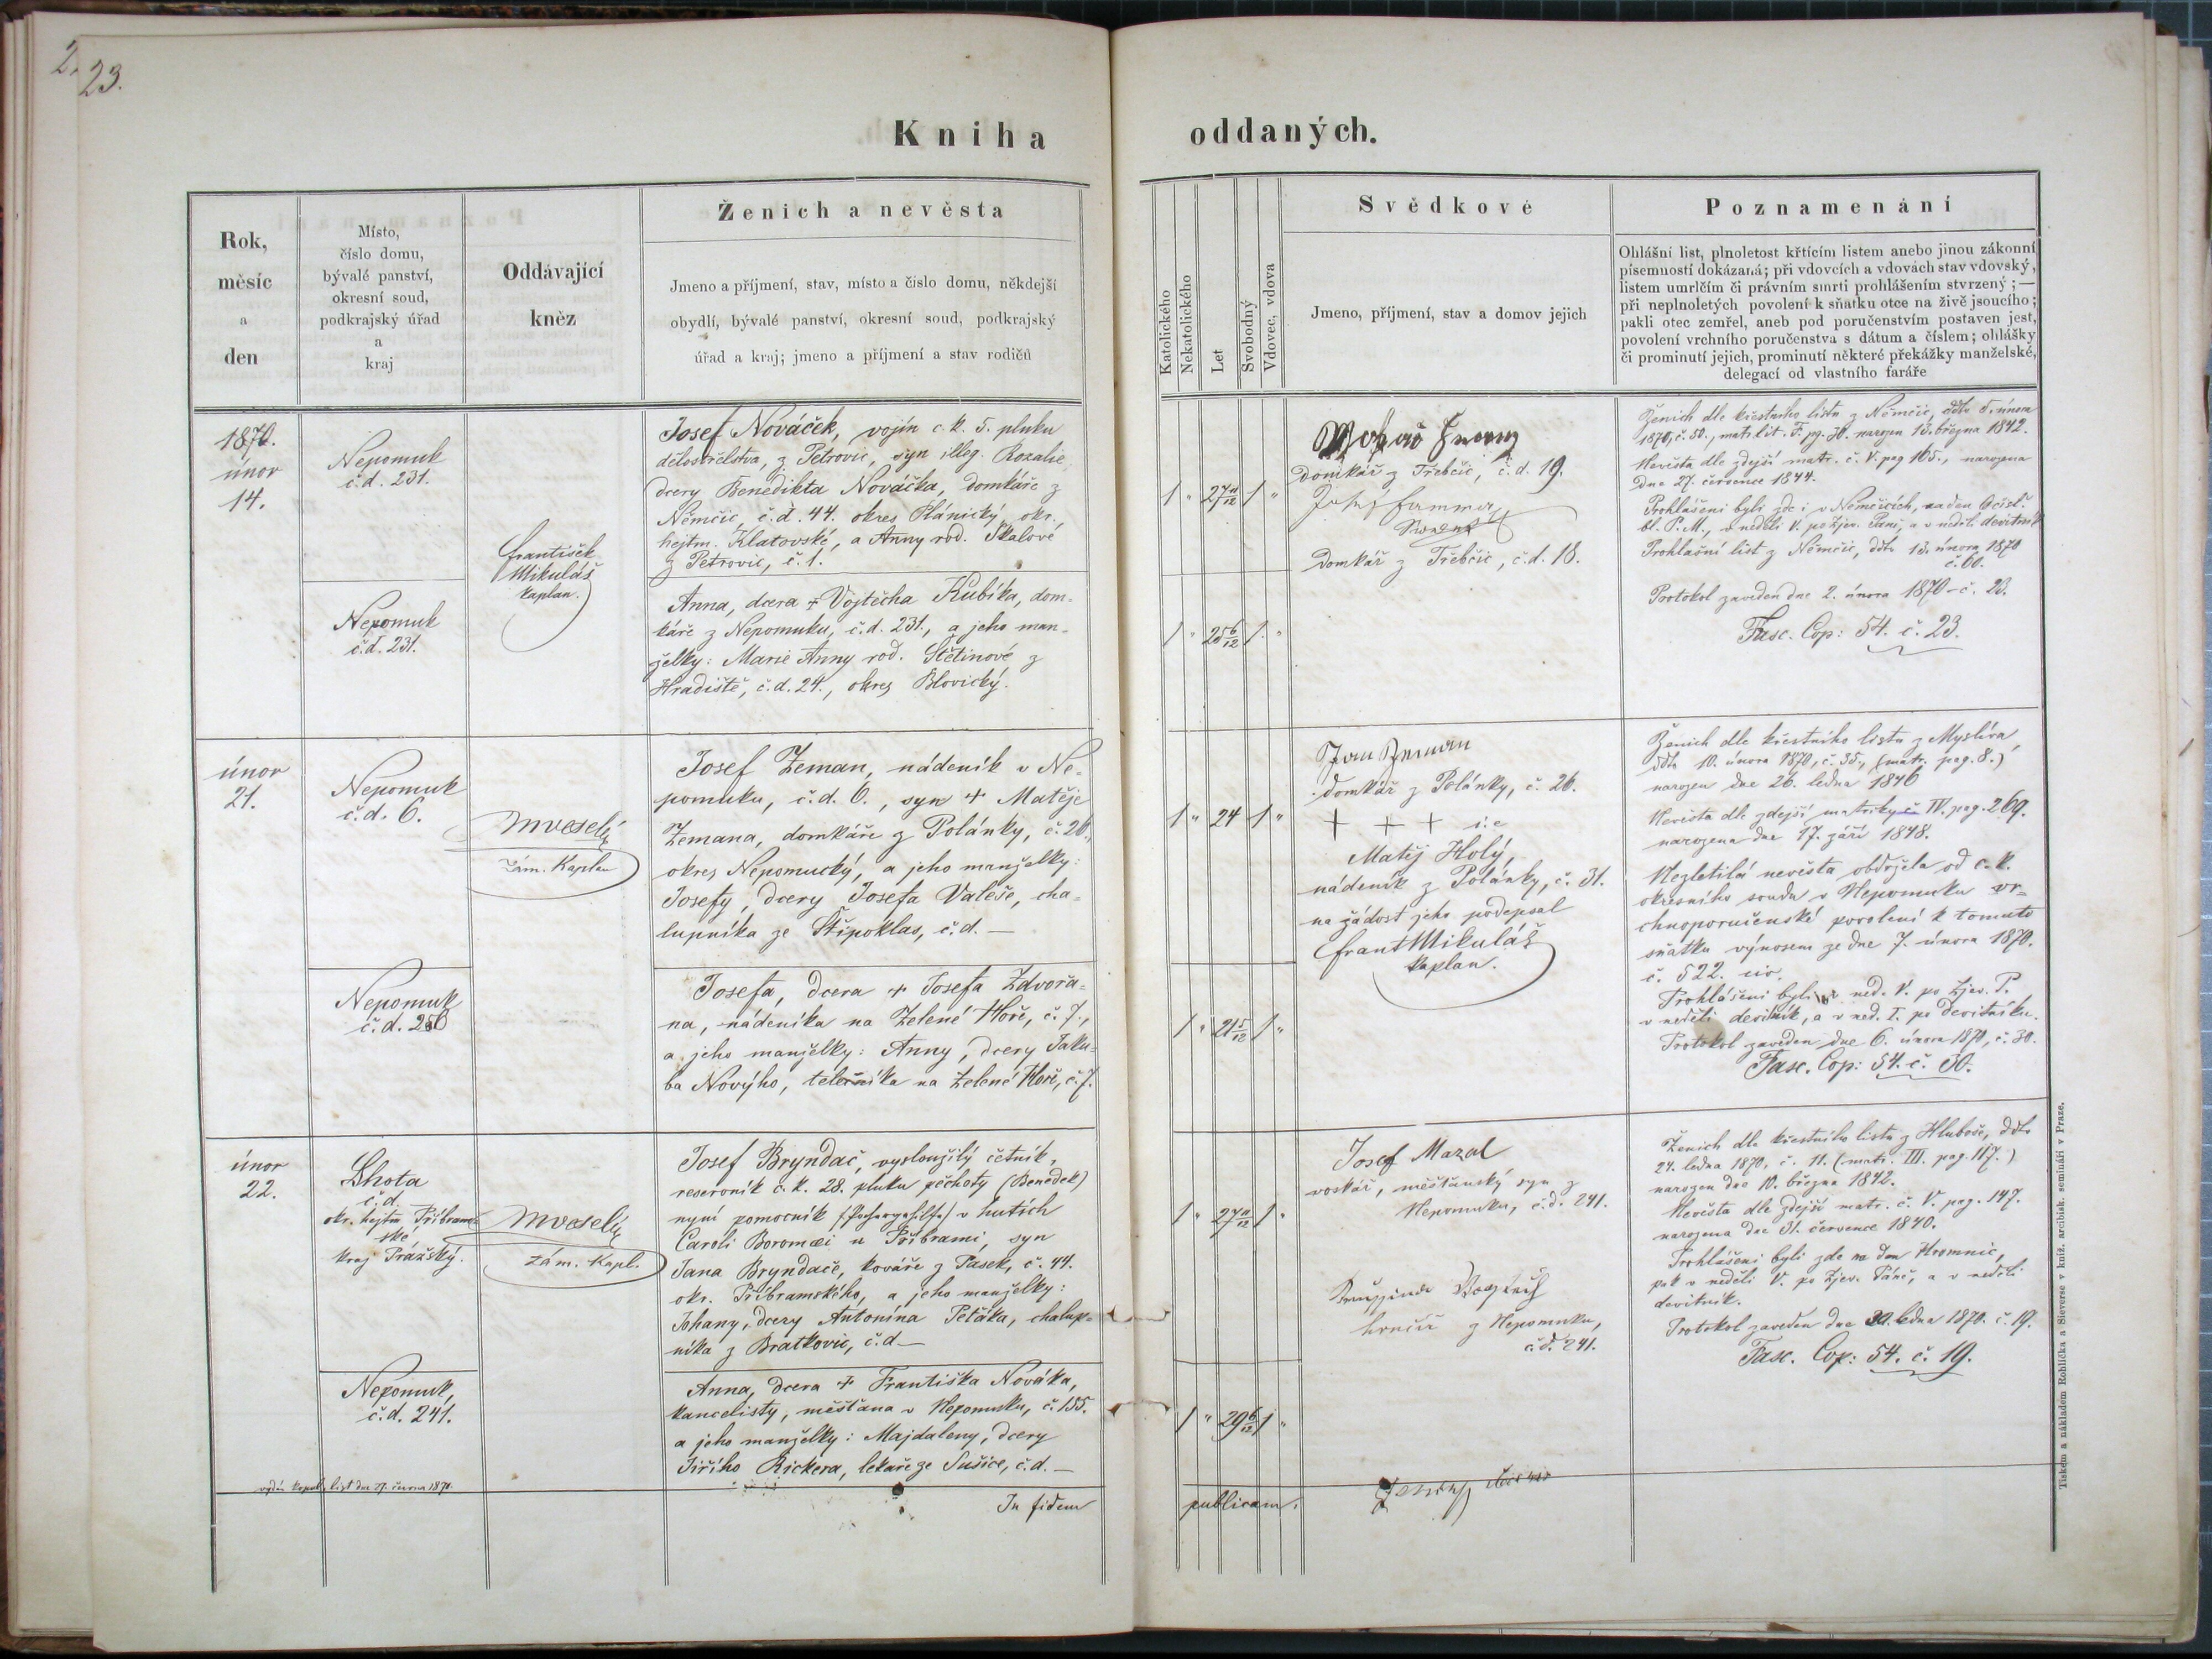 2.
23.
Kniha oddaných.
Rok,
měsíc
a
den
Místo,
číslo domu,
bývalé panství,
okresní soud,
podkrajský úřad
a
kraj
Oddávající
kněz
Ženich a nevěsta
Jmeno a příjmení, stav, místo a číslo domu, někdejší
obydlí, bývalé panství, okresní soud, podkrajský
úřad a kraj; jmeno a příjmení a stav rodičů
Katolického
Nekatolického
Let
Svobodný
Vdovec, vdova
Svědkové
Jmeno, příjmení, stav a domov jejich
Poznamenání
Ohlášní list, plnoletost křtícím listem anebo jinou zákonní
písemností dokázaná; při vdovcích a vdovách stav vdovský,
listem umrlčím či právním smrti prohlášením stvrzený; —
při neplnoletých povolení k sňatku otce na živě jsoucího;
pakli otec zemřel, aneb pod poručenstvím postaven jest,
povolení vrchního poručenstva s dátum a číslem; ohlášky
či prominutí jejich, prominutí některé překážky manželské,
delegací od vlastního faráře
1870.
únor
14.
Nepomuk
č.d. 231.
Nepomuk
č.d. 231.
František
Mikuláš
kaplan.
Josef Nováček, vojín c. k. 5. pluku
dělostřelstva, z Petrovic, syn illeg. Rozalie,
dcery Benedikta Nováčka, domkáře z
Němčic, č.d. 44. okres Plánický, okr.
hejtm. Klatovské, a Anny rod. Skalové
z Petrovic, č. 1.
Anna, dcera + Vojtěcha Kubíka, dom-
káře z Nepomuku, č.d. 231., a jeho man-
želky: Marie Anny rod. Štětinové z
Hradiště, č.d. 24., okres Blovický.
1 " 27 11/12 1 "
1 " 25 6/12 1 "
domkář z Třebčic, č.d. 19.
Domkář z Třebčic, č.d. 18.
Ženich dle křestního listu z Němčic, ddto 5. února
1870, č. 50., matr. lit. F. pg. 30. narozen 13. března 1842.
Nevěsta dle zdejší matr. č. V. pag 165., narozena
dne 27. července 1844.
Prohlášeni byli zde i v Němčicích, na den Očišť.
bl. P. M., v neděli V. po Zjev. Páně, a v neděli devítník
Prohlašní list z Němčic, ddto 13. února 1870
č. 60.
Protokol zaveden dne 2. února 1870 – č. 23.
Fasc. Cop: 54. č. 23.
únor
21.
Nepomuk
č.d. 6.
Nepomuk
č.d. 250
MVeselý
Zám. Kaplan
Josef Zeman, nádeník v Ne-
pomuku, č.d. 6., syn + Matěje
Zemana, domkáře z Polánky, č. 26.,
okres Nepomucký, a jeho manželky:
Josefy, dcery Josefa Valeše, cha-
lupníka ze Štipoklas, č.d. —
Josefa, dcera + Josefa Zdvořa-
na, nádeníka na Zelené Hoře, č. 7.,
a jeho manželky: Anny, dcery Jaku-
ba Nového, na Zelené Hoře, č. 7.
1 " 24 1 "
1 " 21 5/12 1 "
Jan Zeman
domkář z Polánky, č. 26.
+ + + i. e
Matěj Holý,
nádeník z Polánky, č. 31.
na žádost jeho podepsal
Frant Mikuláš
kaplan.
Ženich dle křestního listu z Myslíva,
ddto 10. února 1870, č. 35., (matr. pag. 8.)
narozen dne 26. ledna 1846
Nevěsta dle zdejší matriky č. IV. pag. 269.
narozena dne 17. září 1848.
Nezletilá nevěsta obdržela od c. k.
okresního soudu v Nepomuku vr-
chnoporučenské povolení k tomuto
sňatku výnosem ze dne 7. února 1870.
č. 522. civ.
Prohlášeni byli v ned. V. po Zjev. P.
v neděli devítník, a v ned. I. po devítníku.
Protokol zaveden dne 6. února 1870, č. 30.
Fasc. Cop: 54. č. 30.
únor
22.
Lhota
č.d. —
okr. hejtm Příbram-
ské
kraj Pražský.
Nepomuk,
č.d. 241.
MVeselý
Zám. Kapl.
Josef Bryndač, vysloužilý četník,
reservník c. k. 28. pluku pěchoty (Benedek)
nyní pomocník v hutích
Caroli Boromæi u Příbrami, syn
Jana Bryndače, kováře z Pasek, č. 44.
okr. Příbramského, a jeho manželky:
Johany, dcery Antonína Petáka, chalup-
níka z Bratkovic, č.d —
Anna, dcera + Františka Nováka,
kancelisty, měšťana v Nepomuku, č. 155.
a jeho manželky: Majdaleny, dcery
Jiřího Rickera, lékaře ze Sušice, č.d. —
1 " 27 11/12 1 "
1 " 29 6/12 1 "
Josef Mazal
voskář, měšťanský syn z
Nepomuku, č.d. 241.
hrnčíř z Nepomuku,
č.d. 241.
Ženich dle křestního listu z Hluboše, ddto
24. ledna 1870, č. 11. (matr. III. pag. 117.)
narozen dne 10. března 1842.
Nevěsta dle zdejší matr. č. V. pag. 147.
narozena dne 31. července 1840.
Prohlášeni byli zde na den Hromnic,
pak v neděli V. po Zjev. Páně, a v neděli
devítník.
Protokol zaveden dne 30. ledna 1870. č. 19.
Fasc. Cop: 54. č. 19.
vydán kopul. list dne 27. června 1870.
In fidem publicam:
Tiskem a nákladem Rohlíčka a Sieverse v kníž. arcibisk. semináři v Praze.